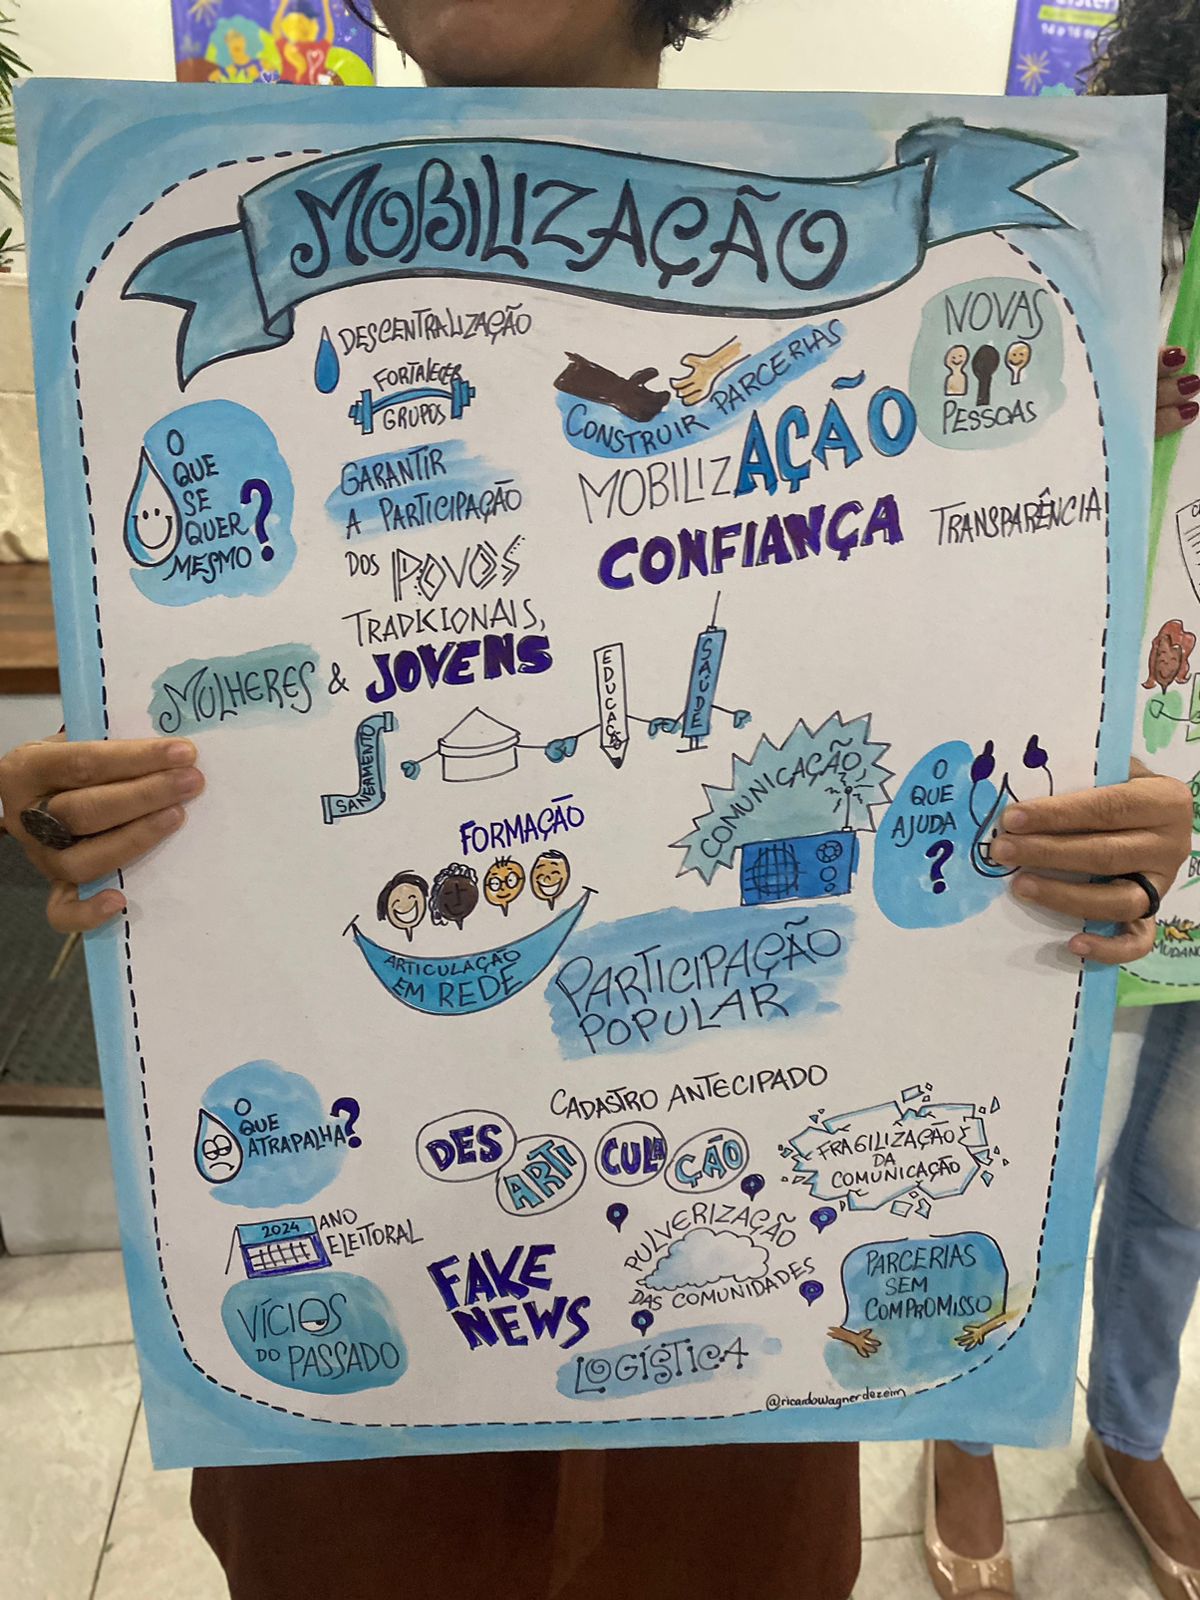 MOBILIZAÇÃO
DESCENTRALIZAÇÃO
FORTALECER
GRUPOS
O
QUE
SE
QUER
MESMO?
GARANTIR
A PARTICIPAÇÃO
DOS POVOS
TRADICIONAIS,
MULHERES & JOVENS
CONSTRUIR PARCERIAS
NOVAS
PESSOAS
MOBILIZAÇÃO
CONFIANÇA
TRANSPARÊNCIA
SANEAMENTO
EDUCAÇÃO
SAÚDE
COMUNICAÇÃO
O
QUE
AJUDA
?
FORMAÇÃO
ARTICULAÇÃO
EM REDE
PARTICIPAÇÃO
POPULAR
O
QUE
ATRAPALHA?
CADASTRO ANTECIPADO
DES ARTI CULA ÇÃO
FRAGILIZAÇÃO
DA
COMUNICAÇÃO
2024
ANO
ELEITORAL
FAKE
NEWS
PULVERIZAÇÃO
DAS COMUNIDADES
PARCERIAS
SEM
COMPROMISSO
VÍCIOS
DO PASSADO
LOGÍSTICA
@ricardowagnerdezeim